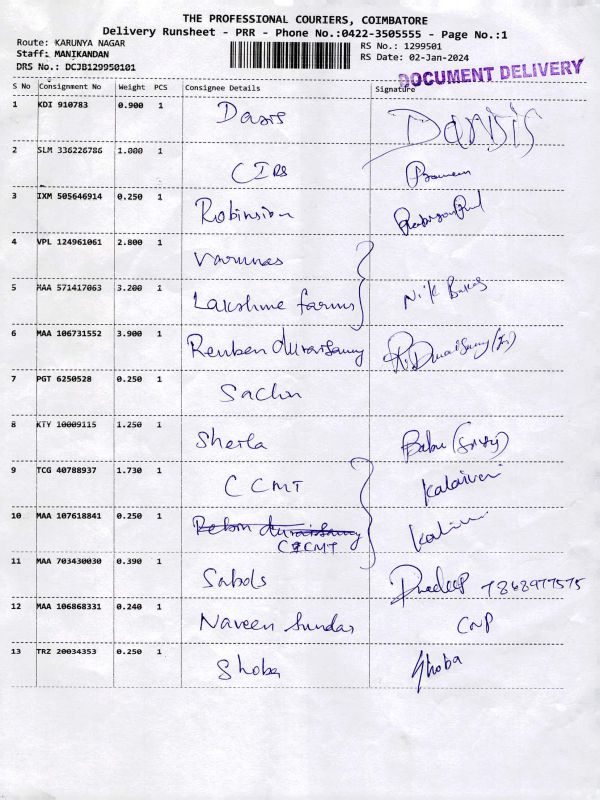 THE PROFESSIONAL COURIERS, COIMBATORE
Delivery Runsheet - PRR - Phone No.:0422-3505555 - Page No.:1
Route: KARUNYA NAGAR
Staff: MANIKANDAN
DRS No.: DCJB129950101
RS No.: 1299501
RS Date: 02-Jan-2024
DOCUMENT DELIVERY
S No Consignment No Weight PCS Consignee Details Signature
1 KDI 910783 0.900 1
2 SLM 336226786 1.000 1
3 IXM 505646914 0.250 1 Robinsion
4 VPL 124961061 2.800 1 Varunas
5 MAA 571417063 3.200 1 Lakshme farms Nik
6 MAA 106731552 3.900 1 Reuben duraisamy R. Duraisamy
7 PGT 6250528 0.250 1 Sachin
8 KTY 10009115 1.250 1 Sherla Babu
9 TCG 40788937 1.730 1 CCMT Kalaiveni
10 MAA 107618841 0.250 1 duraisamy
CCMT
11 MAA 703430030 0.390 1 Sabols Pradeep 7868977575
12 MAA 106868331 0.240 1 Naveen Sundar CNP
13 TRZ 20034353 0.250 1 Shoba Shoba